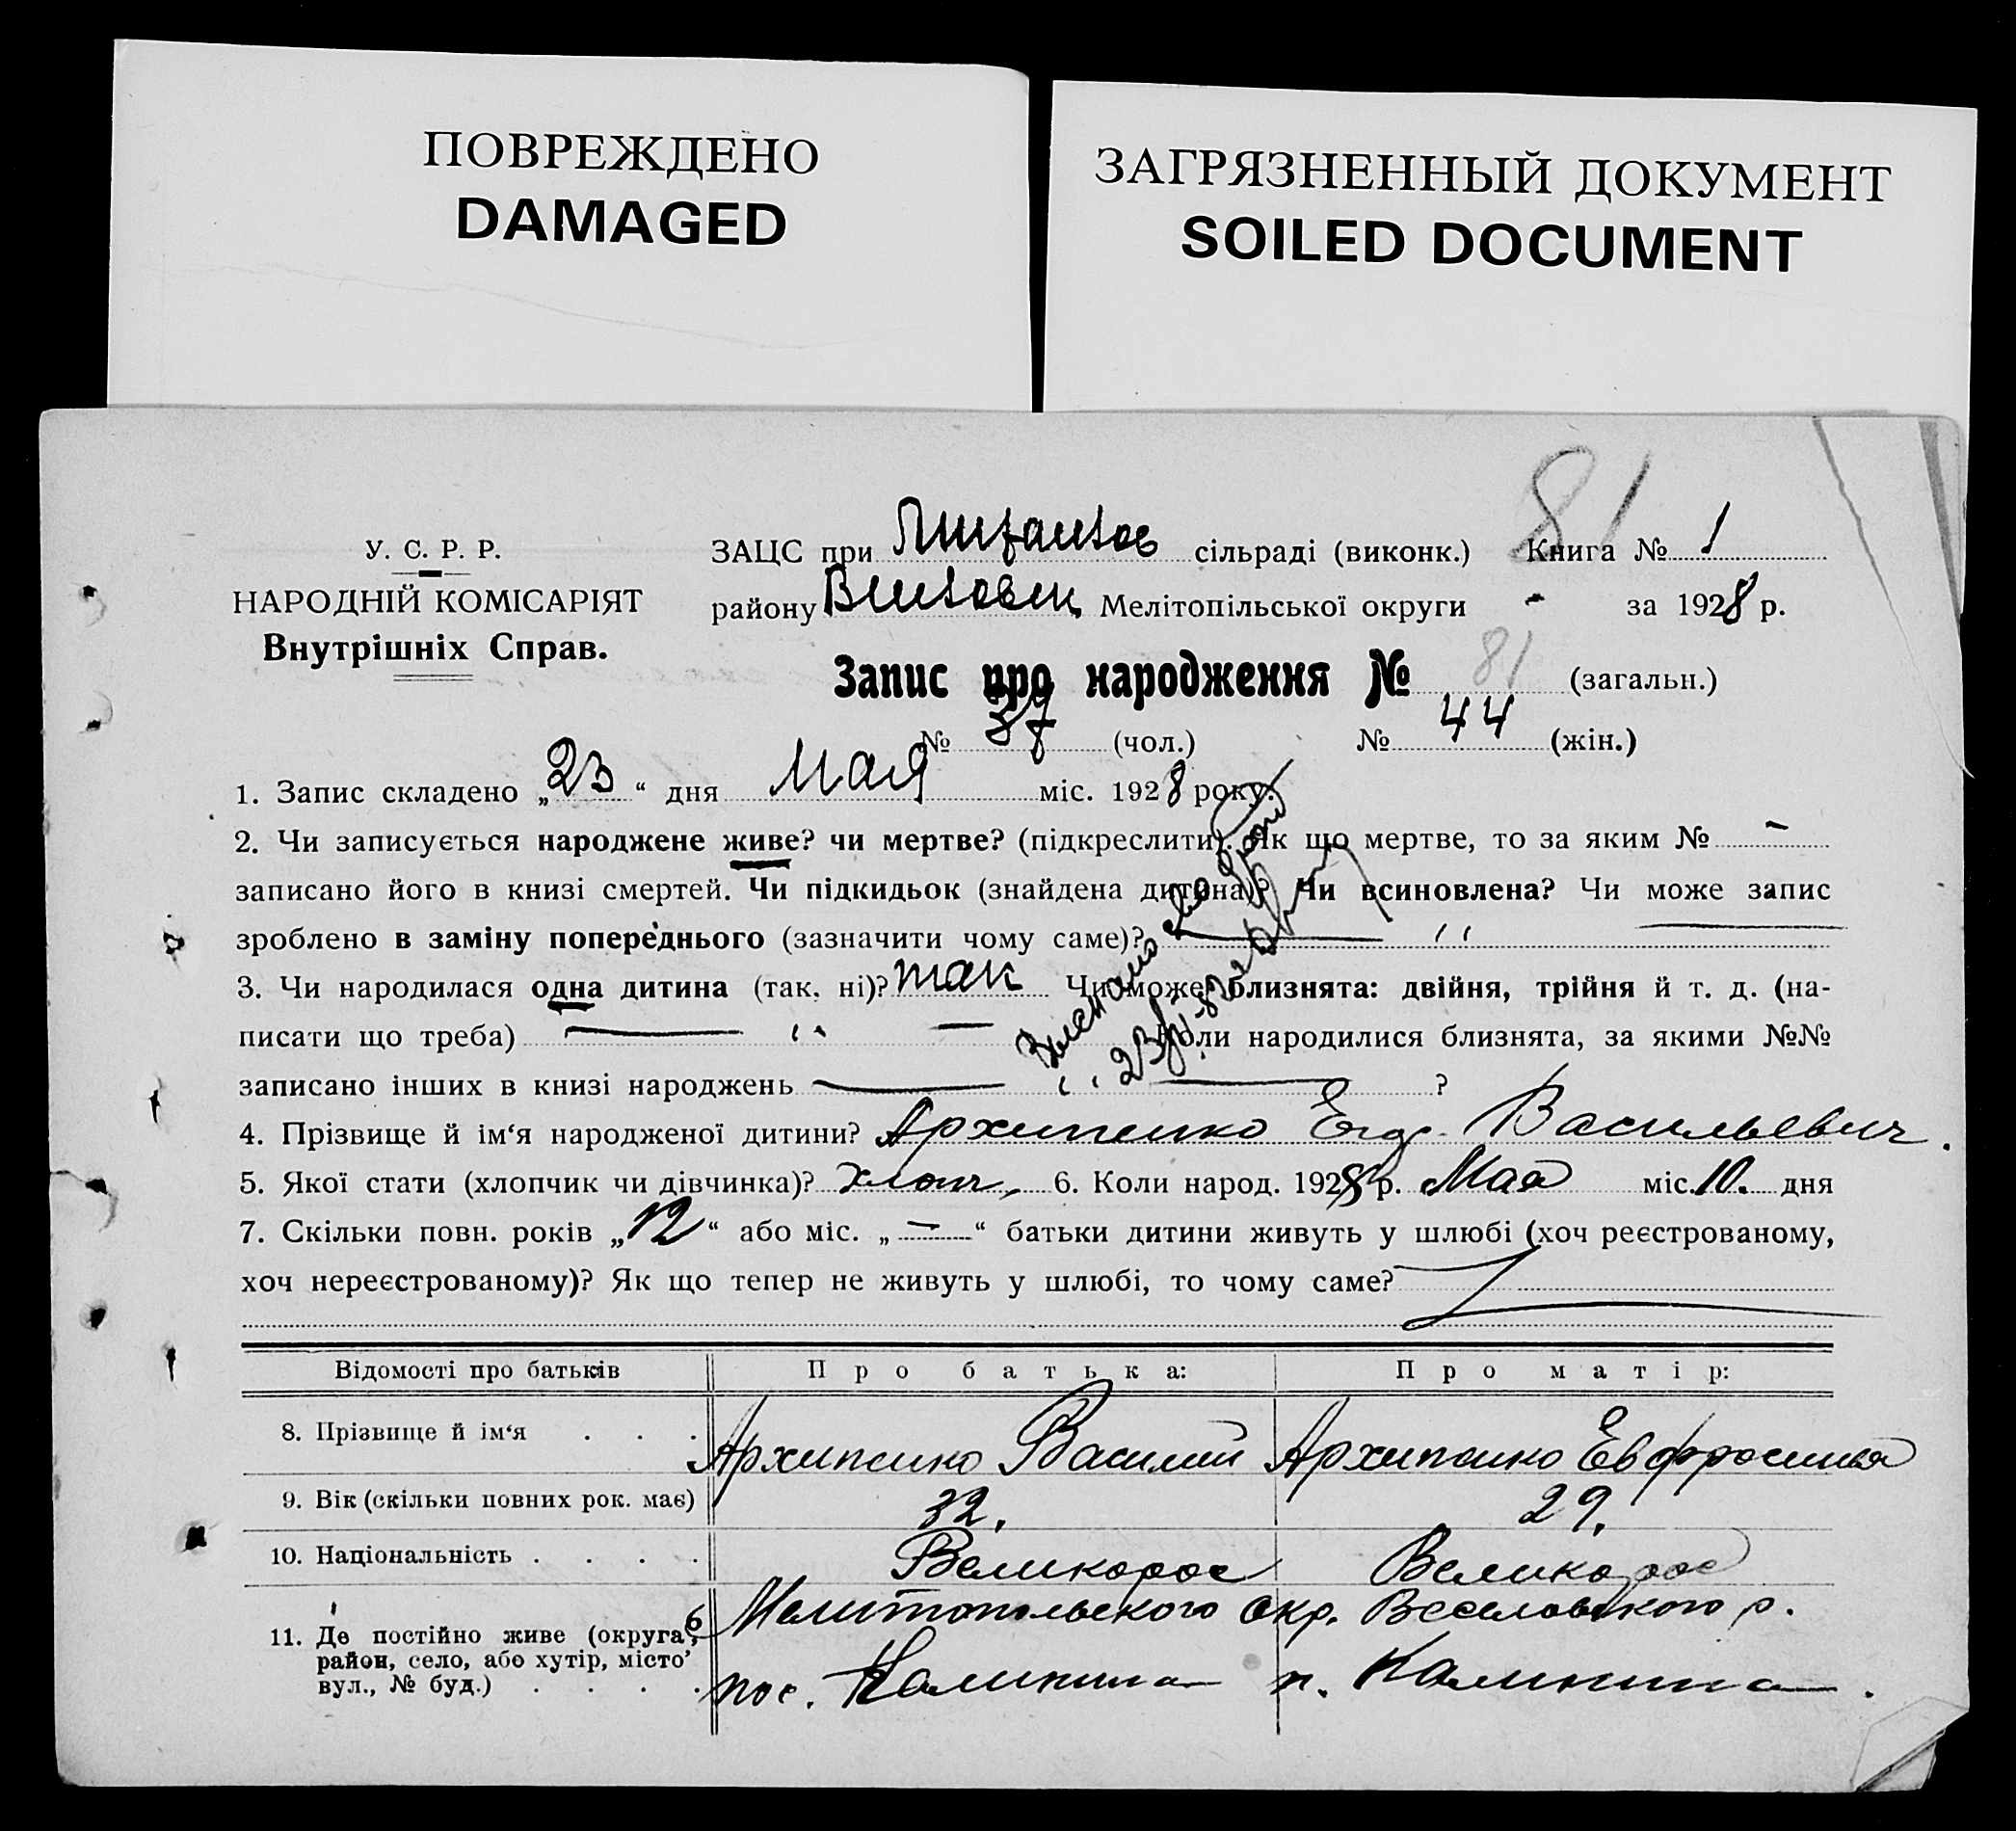 ПОВРЕЖДЕНО
DAMAGED
ЗАГРЯЗНЕННЫЙ ДОКУМЕНТ
SOILED DOCUMENT
81
У. С. Р. Р.
НАРОДНІЙ КОМІСАРІЯТ
Внутрішніх Справ.
ЗАЦС при сільраді (виконк.) Книга № 1
району Мелітопільської округи - за 1928 р.
Запис про народження № 81 (загальн.)
№ 37 (чол.) № 44 (жін.)
1. Запис складено „23“ дня Мая міс. 1928 року.
2. Чи записується народжене живе? чи мертве? (підкреслити). Як що мертве, то за яким № -
записано його в книзі смертей. Чи підкидьок (знайдена дитина)? Чи всиновлена? Чи може запис
зроблено в заміну попереднього (зазначити чому саме)?
3. Чи народилася одна дитина (так, ні)? так Чи може близнята: двійня, трійня й т. д. (на-
писати що треба) Коли народилися близнята, за якими №№
записано інших в книзі народжень ?
4. Прізвище й ім‘я народженої дитини? Архипенко Васильевич.
5. Якої стати (хлопчик чи дівчинка)? хлопч. 6. Коли народ. 1928 р. Мая міс. 10. дня
7. Скільки повн. років „12“ або міс. „—“ батьки дитини живуть у шлюбі (хоч реєстрованому,
хоч нереєстрованому)? Як що тепер не живуть у шлюбі, то чому саме?
Відомості про батьків Про батька: Про матір:
8. Прізвище й ім‘я Архипенко Василий Архипенко Евфросинья
9. Вік (скільки повних рок. має) 32. 29.
10. Національність Великорос Великорос
11. Де постійно живе (округа, Мелитопольского Окр. Веселовского р.
район, село, або хутір, місто
вул., № буд.) пос. Калинина п. Калинина.